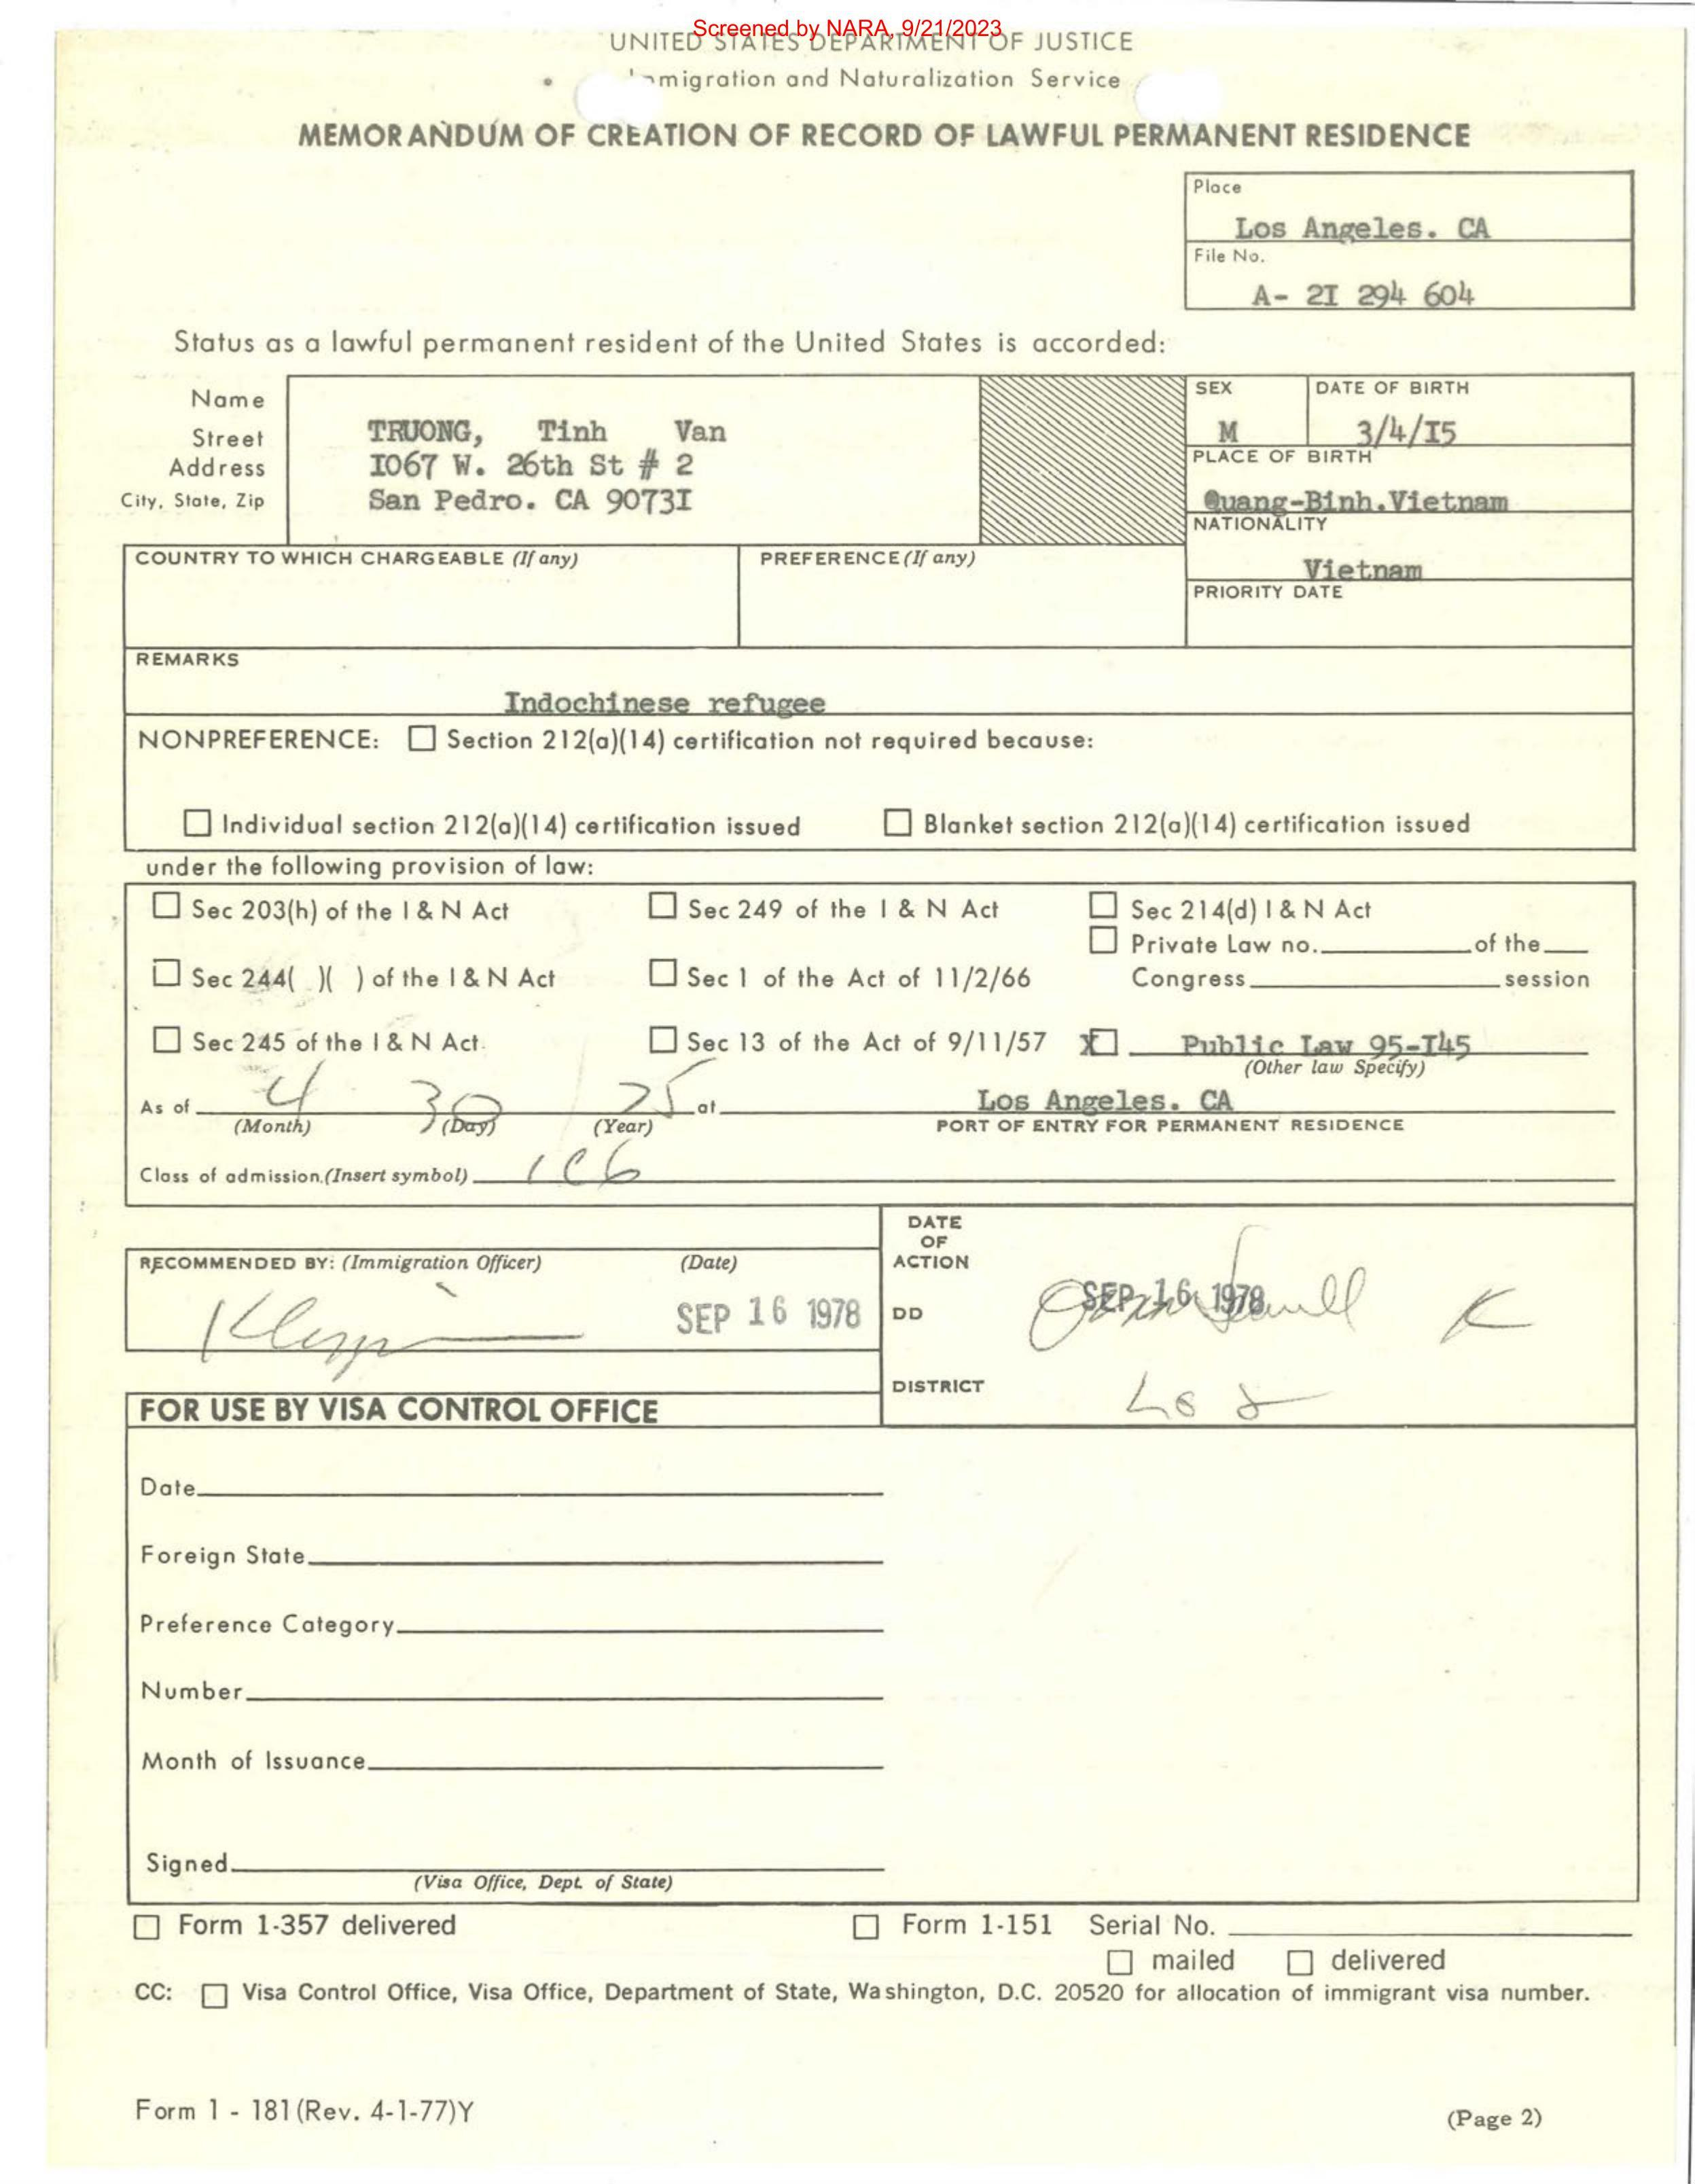 Screened by NARA, 9/21/2023
UNITED STATES DEPARTMENT OF JUSTICE
Immigration and Naturalization Service
MEMORANDUM OF CREATION OF RECORD OF LAWFUL PERMANENT RESIDENCE
Place
Los Angeles. CA
File No.
A- 2I 294 604
Status as a lawful permanent resident of the United States is accorded:
Name
Street
Address
City, State, Zip
TRUONG, Tinh Van
I067 W. 26th St # 2
San Pedro. CA 9073I
SEX
M
DATE OF BIRTH
3/4/I5
PLACE OF BIRTH
Quang-Binh.Vietnam
NATIONALITY
Vietnam
PRIORITY DATE
COUNTRY TO WHICH CHARGEABLE (If any)
PREFERENCE (If any)
REMARKS
Indochinese refugee
NONPREFERENCE: ☐ Section 212(a)(14) certification not required because:
☐ Individual section 212(a)(14) certification issued ☐ Blanket section 212(a)(14) certification issued
under the following provision of law:
☐ Sec 203(h) of the I & N Act ☐ Sec 249 of the I & N Act ☐ Sec 214(d) I & N Act
☐ Private Law no. of the
☐ Sec 244( )( ) of the I & N Act ☐ Sec 1 of the Act of 11/2/66 Congress session
☐ Sec 245 of the I & N Act. ☐ Sec 13 of the Act of 9/11/57 X☐ Public Law 95-I45
(Other law Specify)
As of 4 30 75 at Los Angeles. CA
(Month) (Day) (Year) PORT OF ENTRY FOR PERMANENT RESIDENCE
Class of admission.(Insert symbol) IC6
RECOMMENDED BY: (Immigration Officer) (Date)
SEP 16 1978
DATE
OF
ACTION
SEP 16 1978
DD
K
DISTRICT
FOR USE BY VISA CONTROL OFFICE
Date
Foreign State
Preference Category
Number
Month of Issuance
Signed
(Visa Office, Dept. of State)
☐ Form 1-357 delivered ☐ Form 1-151 Serial No.
☐ mailed ☐ delivered
CC: ☐ Visa Control Office, Visa Office, Department of State, Washington, D.C. 20520 for allocation of immigrant visa number.
Form 1 - 181 (Rev. 4-1-77)Y
(Page 2)